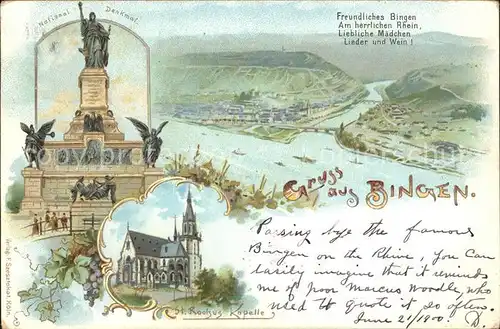 National Denkmal.
Freundliches Bingen
Am herrlichen Rhein,
Liebliche Mädchen
Lieder und Wein!
Gruss aus BINGEN.
St. Rochus Kapelle
Passing by the famous
Bingen on
the Rhine, You Can
Easily imagine that it reminds
me of poor Marcus Woodle, who
used to quote it so often
June 21/1900. D